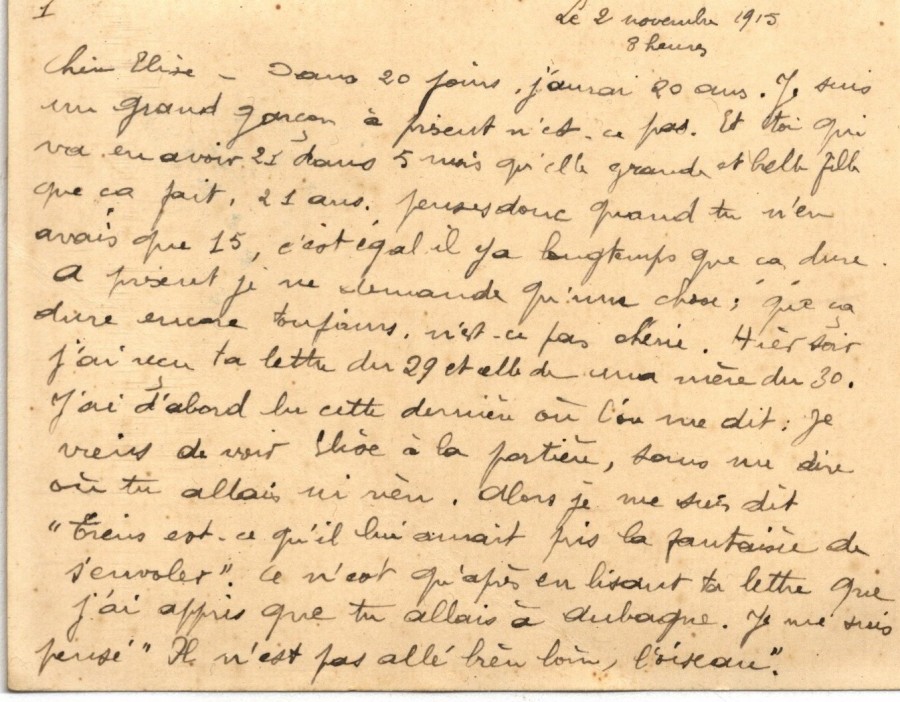 1
Le 2 novembre 1915
8 heures
Chère Elise - Dans 20 jours, j'aurai 20 ans. Je suis
un grand garçon à présent n'est-ce pas. Et toi qui
va en avoir 21 dans 5 mois qu'elle grande et belle fille
que ça fait, 21 ans. penses donc quand tu n'en
avais que 15, c'est égal il y a longtemps que ça dure.
A présent je ne demande qu'une chose; que ça
dure encore toujours, n'est-ce pas chérie. Hier soir
j'ai reçu ta lettre du 29 et celle de ma mère du 30.
J'ai d'abord lu cette dernière où l'on me dit: Je
viens de voir Elise à la portière, sans me dire
où tu allais ni rien. Alors je me suis dit
"Tiens est-ce qu'il lui aurait pris la fantaisie de
s'envoler". Ce n'est qu'après en lisant ta lettre que
j'ai appris que tu allais à Aubagne. Je me suis
pensé "Il n'est pas allé bien loin, l'oiseau".